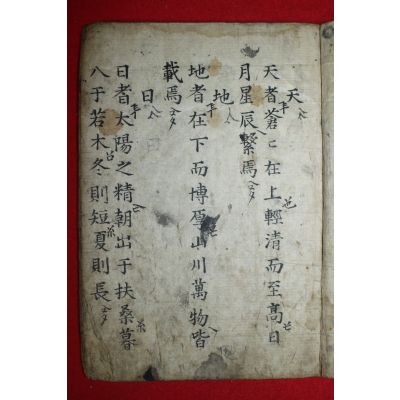 天
天者蒼〻在上輕清而至高日
月星辰繫焉
地
地者在下而博厚山川萬物皆
載焉
日
日者太陽之精朝出于扶桑暮
入于若木冬則短夏則長